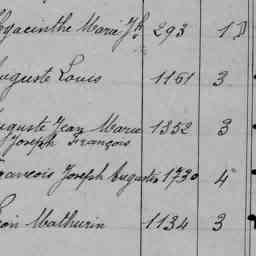 Hyacinthe Marie Jh 293 1D
Auguste Louis 1161 3
Auguste Jean Marie 1352 3
Joseph François
François Joseph Auguste 1730 4
Léon Mathurin 1134 3